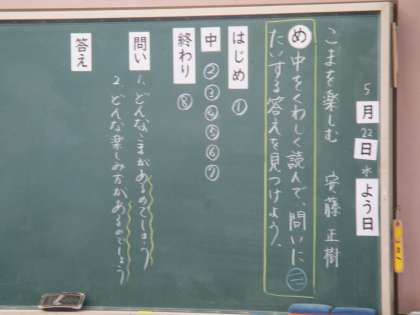 5月22日水よう日
こまを楽しむ 安藤正樹
め 中をくわしく読んで、問いに㊁
たいする答えを見つけよう。
はじめ ①
中 ②③④⑤⑥⑦
終わり ⑧
問い 1、どんなこまがあるのでしょう
2、どんな楽しみ方があるのでしょう
答え